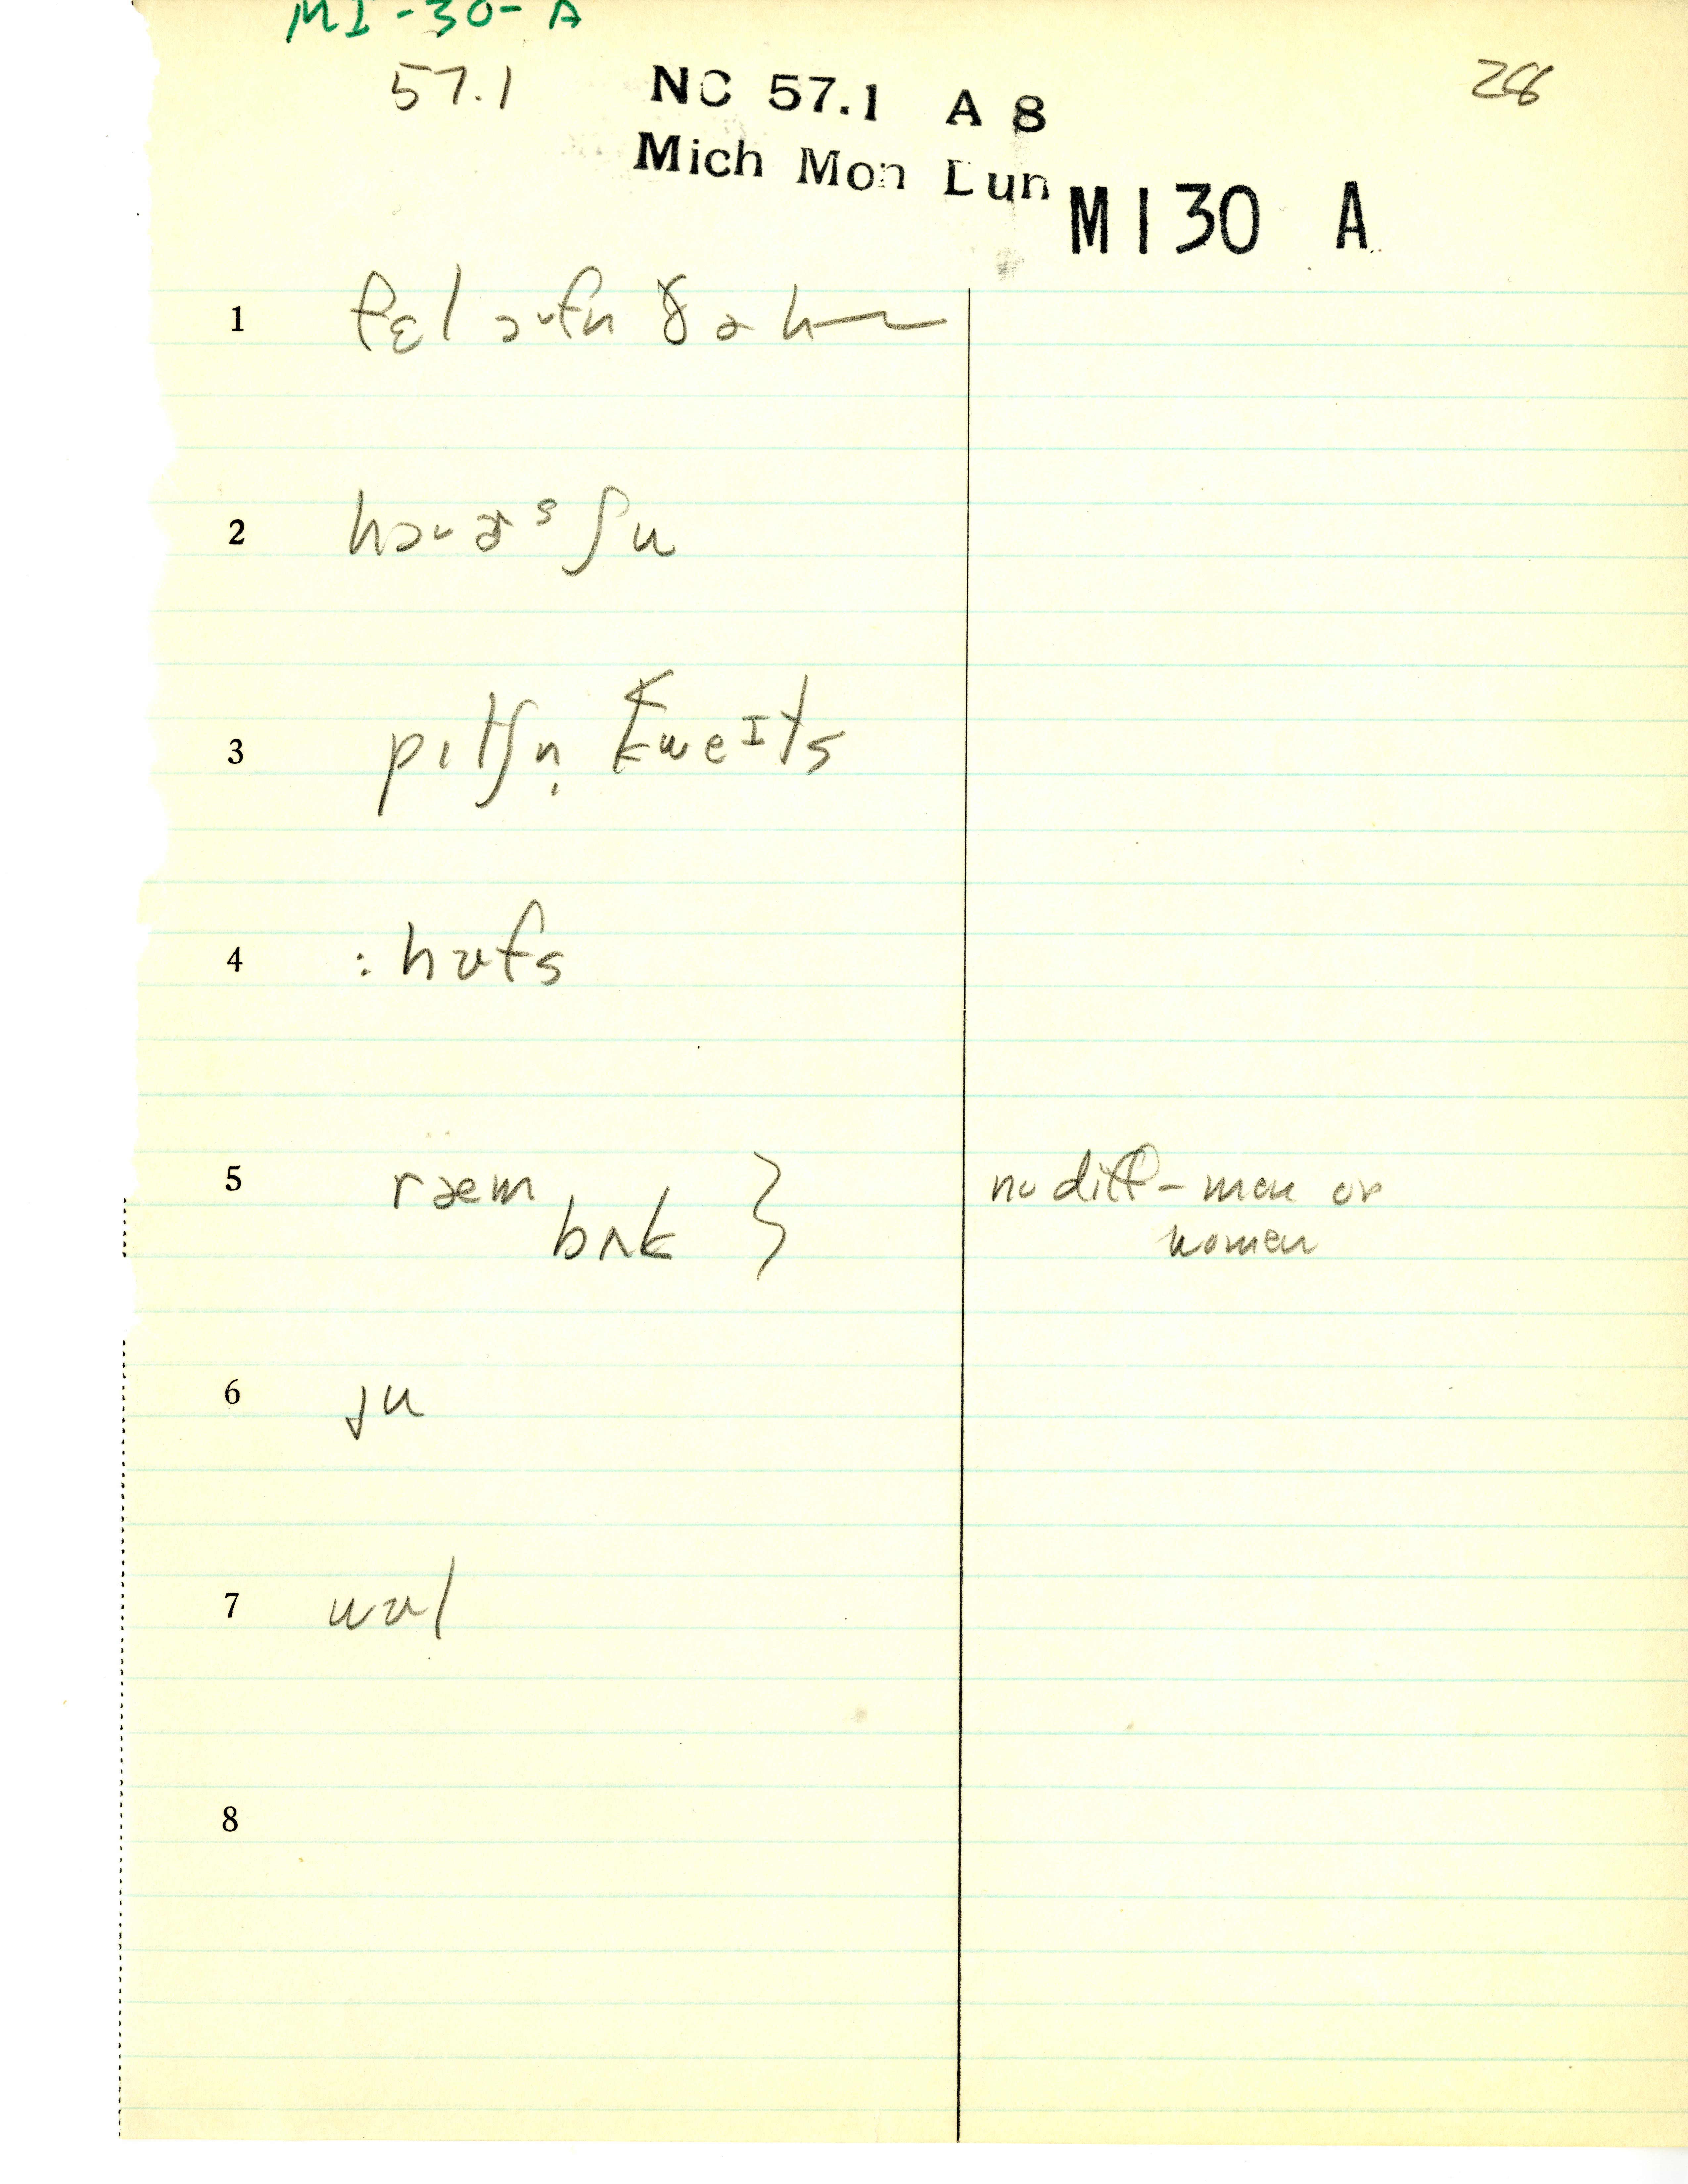 MI-30-A
57.1 NC 57.1 A 8 28
Mich Mon Dun MI30 A
1 fɛl ɔʊfn ðə h
2 hɔʊɚs ʃu
3 pɪtʃn̩ kweɪts
4 : hʊfs
5 ræm no diff - men or
bʌk } women
6 ju
7 wʊl
8